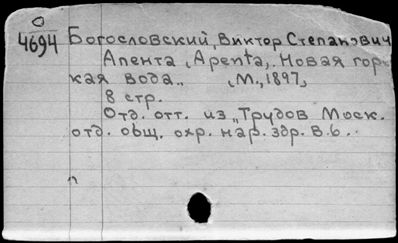 О
4694 Богословский, Виктор Степанович
Апента (Apenta). Новая гор
кая вода. (М., 1897)
8 стр.
Отд. отт. из "Трудов Моск.
отд. общ. охр. нар. здр. в. 6.